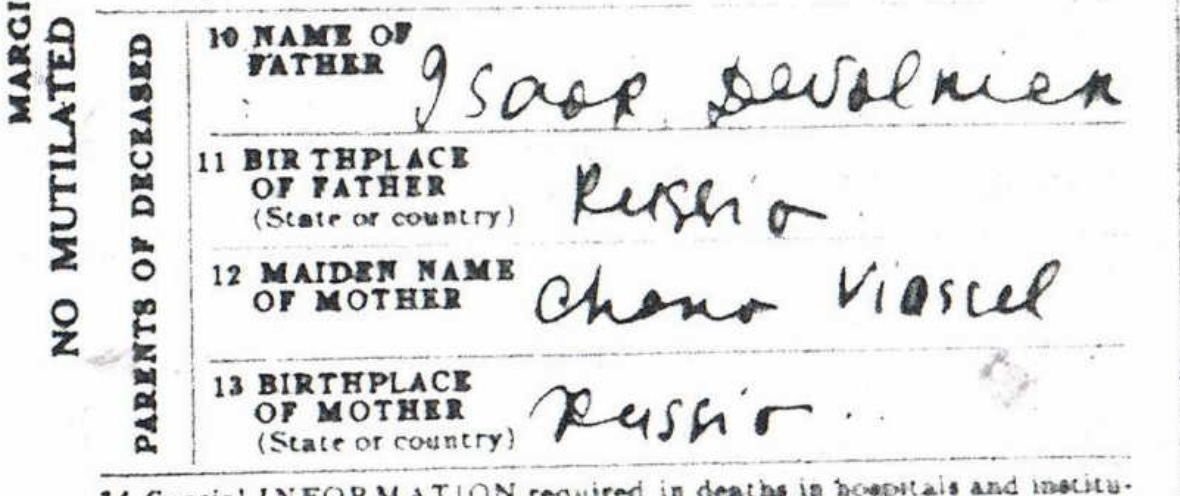 MARGI
NO MUTILATED
PARENTS OF DECEASED
10 NAME OF
FATHER Isaac
11 BIRTHPLACE
OF FATHER
(State or country) Russia
12 MAIDEN NAME
OF MOTHER Chana
13 BIRTHPLACE
OF MOTHER
(State or country) Russia
14 Special INFORMATION required in deaths in hospitals and institu-